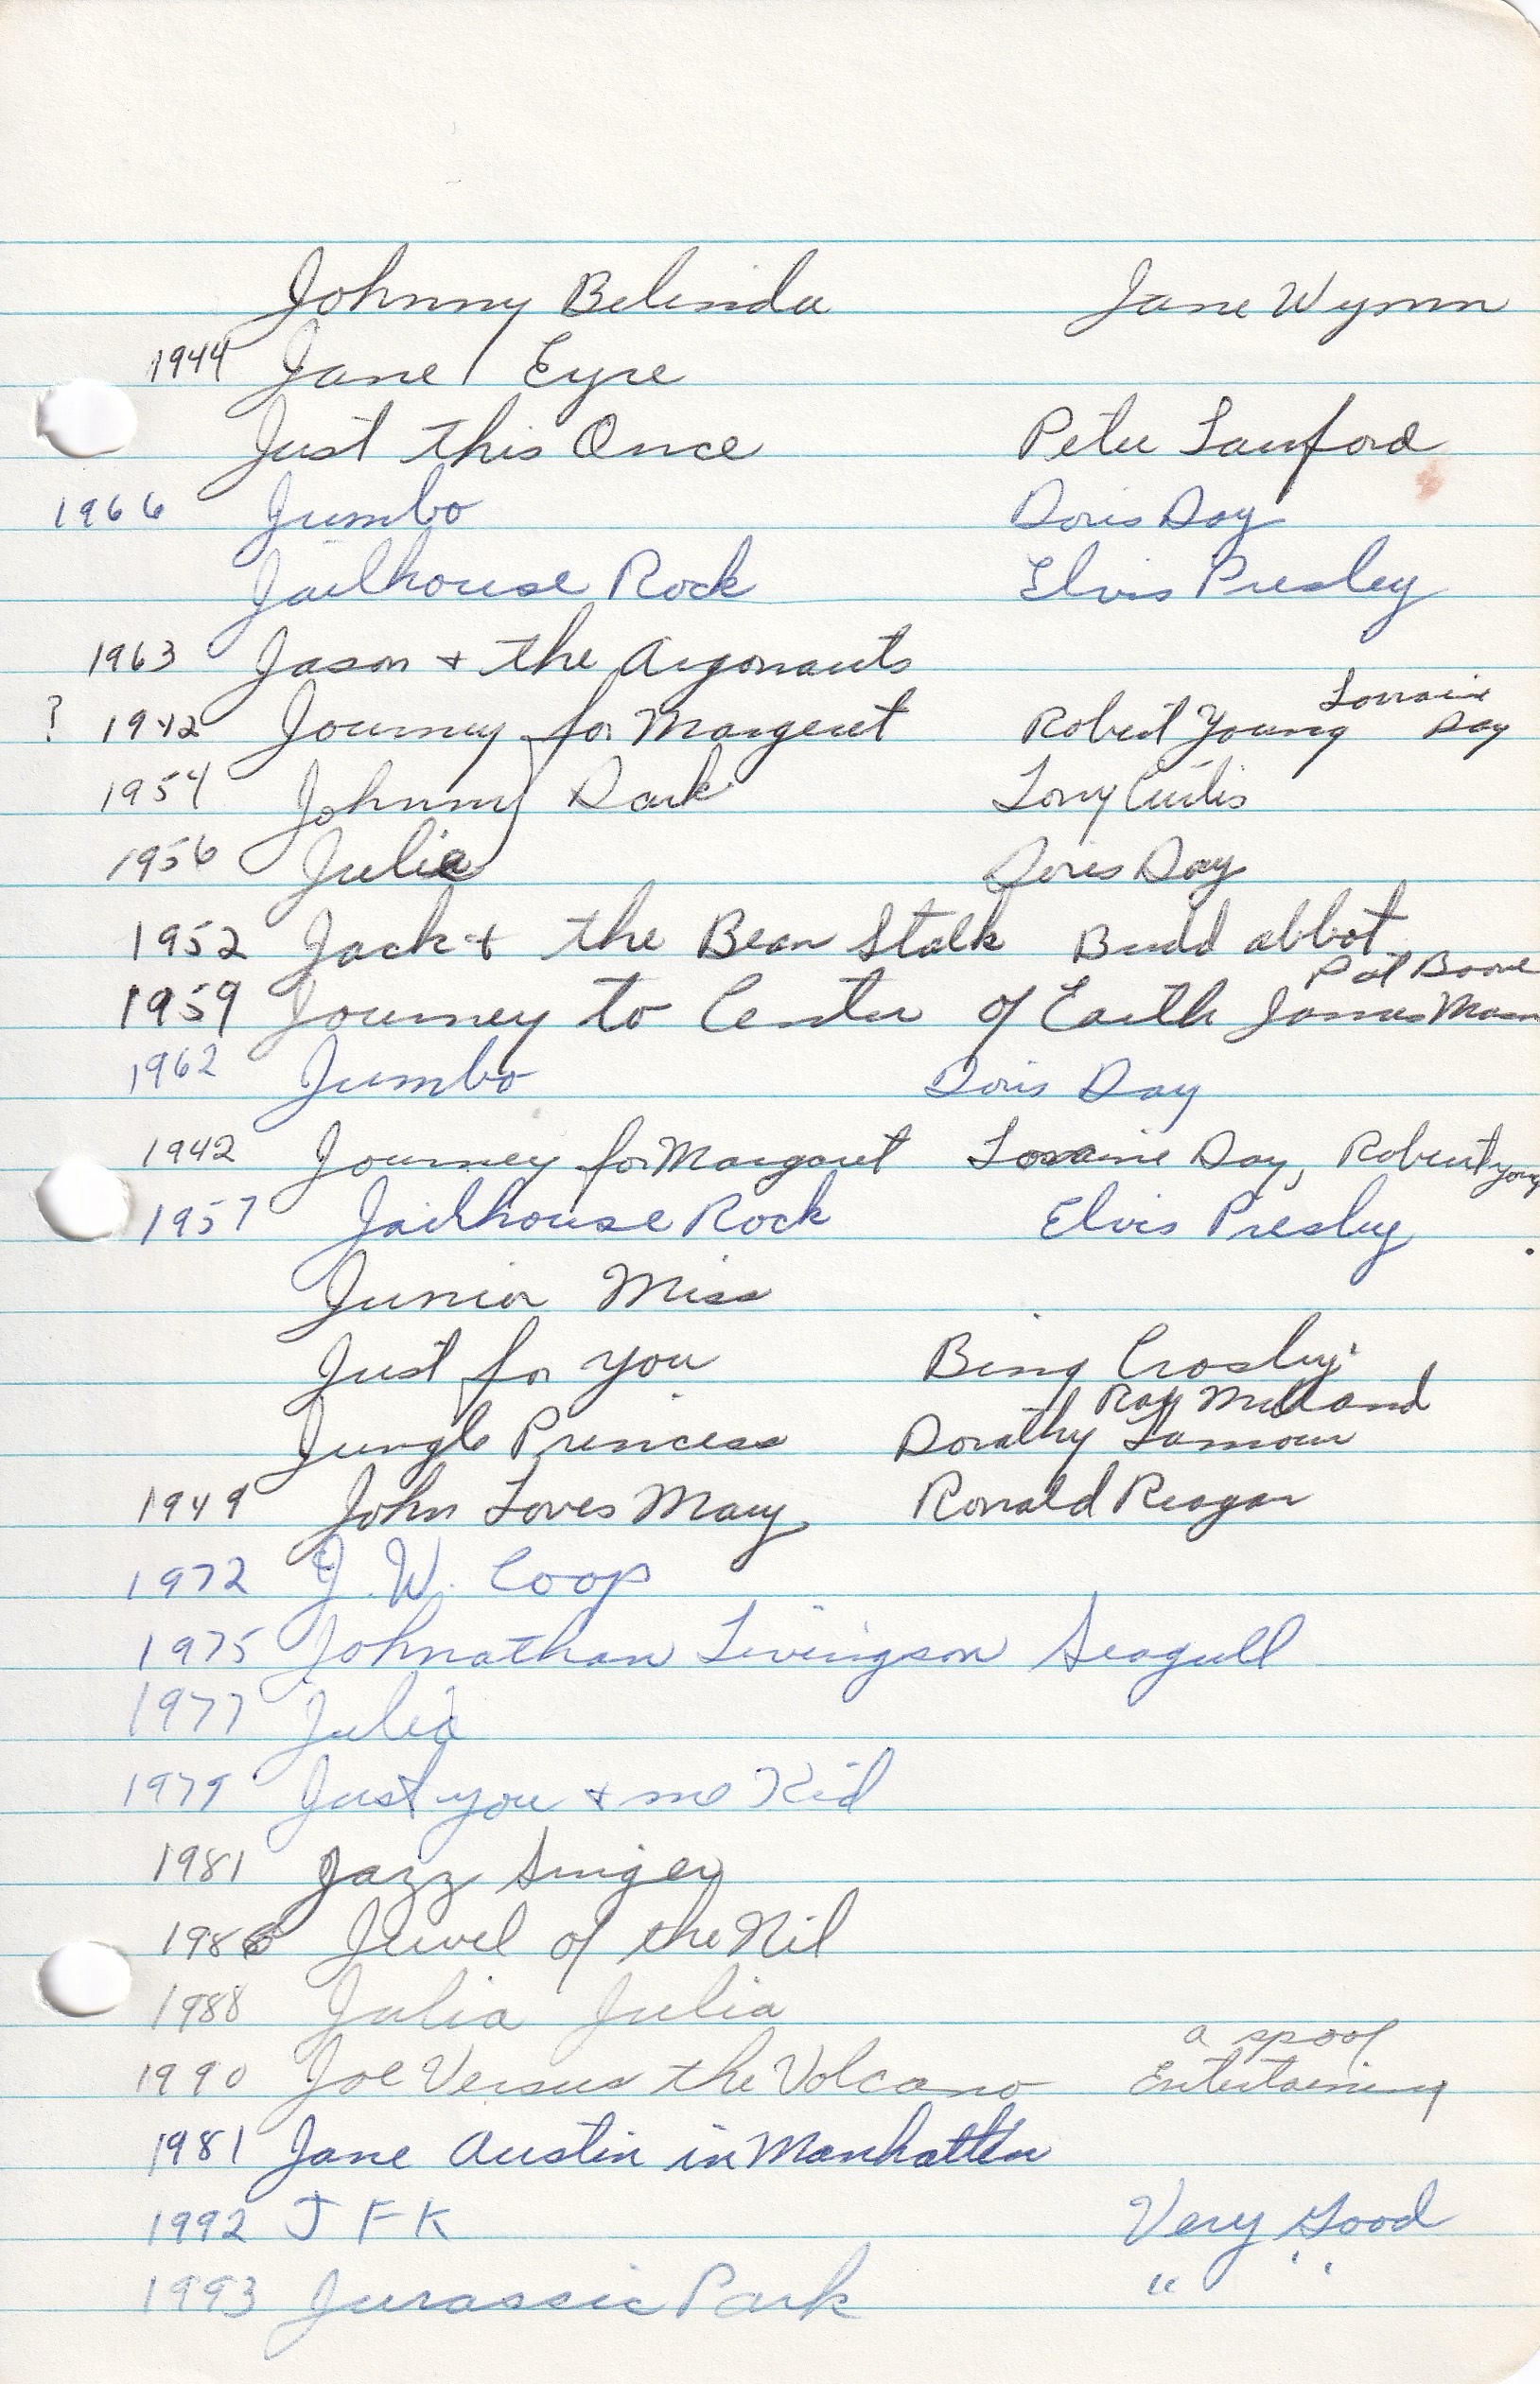 Johnny Belinda Jane Wymn
1944 Jane Eyre
Just this Once Peter Lawford
1966 Jumbo Doris Day
Jailhouse Rock Elvis Presley
1963 Jason + the Argonauts
? 1942 Journey for Margeret Robert Young Lorraine Day
1954 Johnny Dark Tony Curtis
1956 Julie Doris Day
1952 Jack + the Bean Stalk Budd abbot
1959 Journey to Center of Earth Pat Boone James Mason
1962 Jumbo Doris Day
1942 Journey for Margaret Lorraine Day, Robert Young
1957 Jailhouse Rock Elvis Presley
Junior Miss
Just for you Bing Crosby
Jungle Princess Dorothy Lamour Ray Milland
1949 John Loves Mary Ronald Reagan
1972 J. W. Coop
1975 Johnathan Livingson Seagull
1977 Julia
1979 Just you + me Kid
1981 Jazz Singer
1986 Jewel of the Nil
1988 Julia Julia
1990 Joe Versus the Volcano a spoof Entertaining
1981 Jane Austin in Manhatten
1992 JFK Very Good
1993 Jurassic Park " "